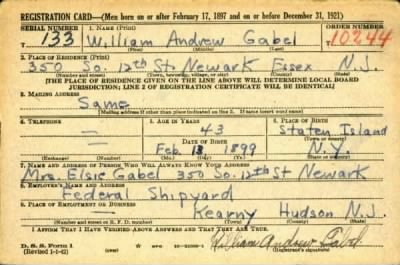 REGISTRATION CARD—(Men born on or after February 17, 1897 and on or before December 31, 1921)
SERIAL NUMBER 1. NAME (Print) ORDER NUMBER
T 133 William Andrew Gabel 10244
(First) (Middle) (Last)
2. PLACE OF RESIDENCE (Print)
350 So. 12th St. Newark Essex N.J.
(Number and street) (Town, township, village, or city) (County) (State)
[THE PLACE OF RESIDENCE GIVEN ON THE LINE ABOVE WILL DETERMINE LOCAL BOARD
JURISDICTION; LINE 2 OF REGISTRATION CERTIFICATE WILL BE IDENTICAL]
3. MAILING ADDRESS
Same
[Mailing address if other than place indicated on line 2. If same insert word same]
4. TELEPHONE 5. AGE IN YEARS 6. PLACE OF BIRTH
— 43 Staten Island
DATE OF BIRTH (Town or county)
— Feb. 13 1899 N.Y.
(Exchange) (Number) (Mo.) (Day) (Yr.) (State or country)
7. NAME AND ADDRESS OF PERSON WHO WILL ALWAYS KNOW YOUR ADDRESS
Mrs. Elsie Gabel 350 So. 12th St Newark
8. EMPLOYER'S NAME AND ADDRESS
Federal Shipyard
9. PLACE OF EMPLOYMENT OR BUSINESS
— Kearny Hudson N.J.
(Number and street or R. F. D. number) (Town) (County) (State)
I AFFIRM THAT I HAVE VERIFIED ABOVE ANSWERS AND THAT THEY ARE TRUE.
D. S. S. Form 1
(Revised 1-1-42) William Andrew Gabel
(Registrant's signature)